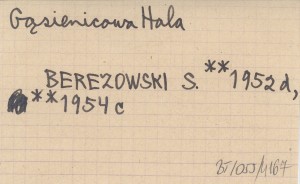 Gąsienicowa Hala
BEREZOWSKI S. **1952d,
**1954c